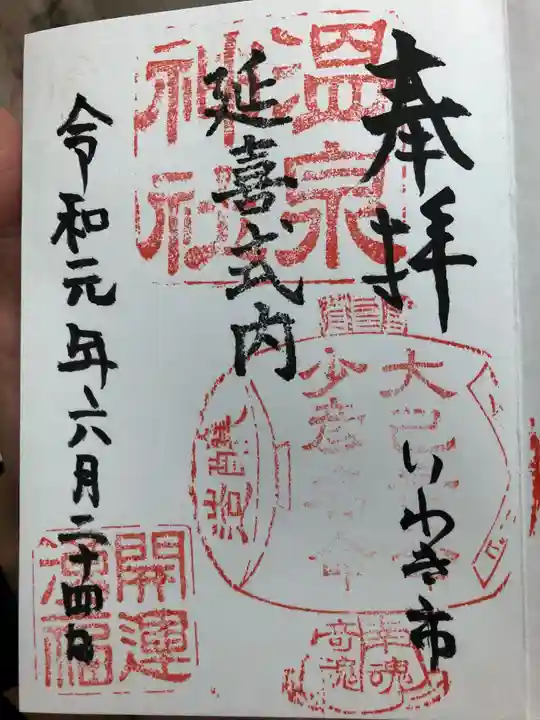 奉拝
いわき市
延喜式内
温泉
神社
令和元年六月二十四日
幸魂
奇魂
開運